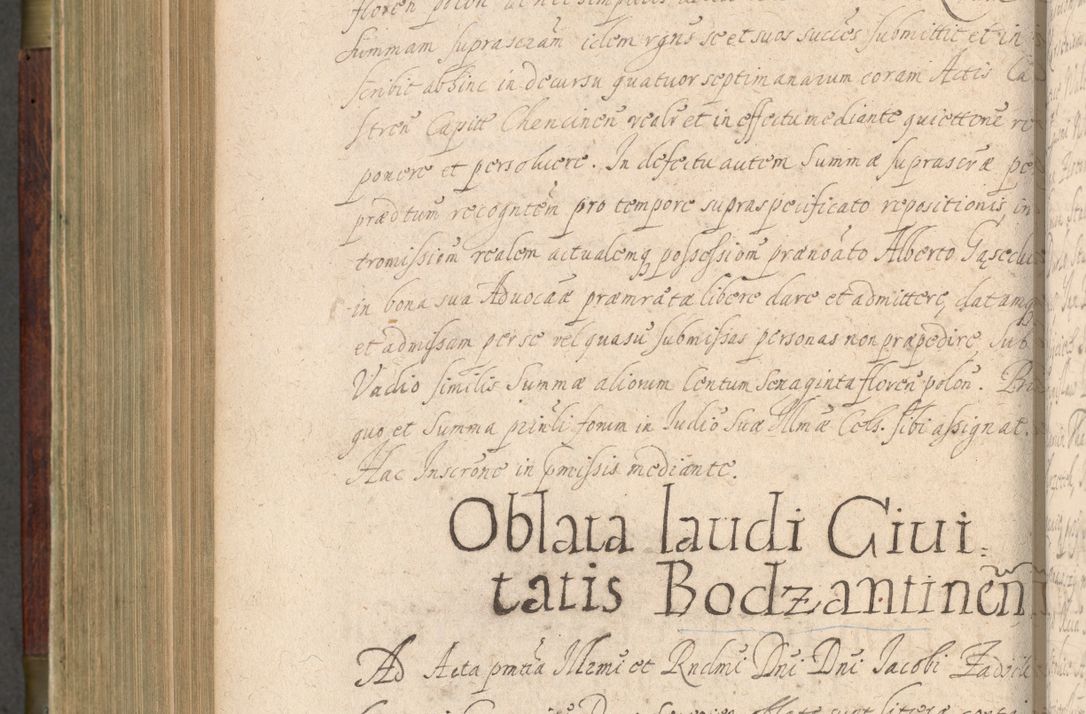 Summam suprascrãm idem rgns̃ se et suos succes̃ submittit et in
scribit abhinc in decursu quatuor septimanarum coram Actis Ca
stren̄ Capit̃ Chencinen̄ realr̃ et in effectu mediante quiettone re
ponere et persoluere. In defectu autem Summæ suprascræ per
prædtum recogntem pro tempore supraspecificato repositionis, in
tromissiom̄ realem actualemq possessiom̄ prænoãto Alberto Gąsec
in bona sua Aduocãæ præmrãtæ libere dare et admittere, datamq
et admissam per se vel quasuis submissas personas non præpedire, sub
Vadio similis Summæ aliorum Centum Senaginta floren̄ polon̄. Pro
quo et Summa prinli forum in Iudio Suæ Illmæ Cels. sibi assignat.
Hac Inscrone in præmissis mediante.
Oblata laudi Ciui
tatis Bodzantinen̄
Ad Acta pntia Illmi et Rndmi Dni Dni Iacobi Zadzik